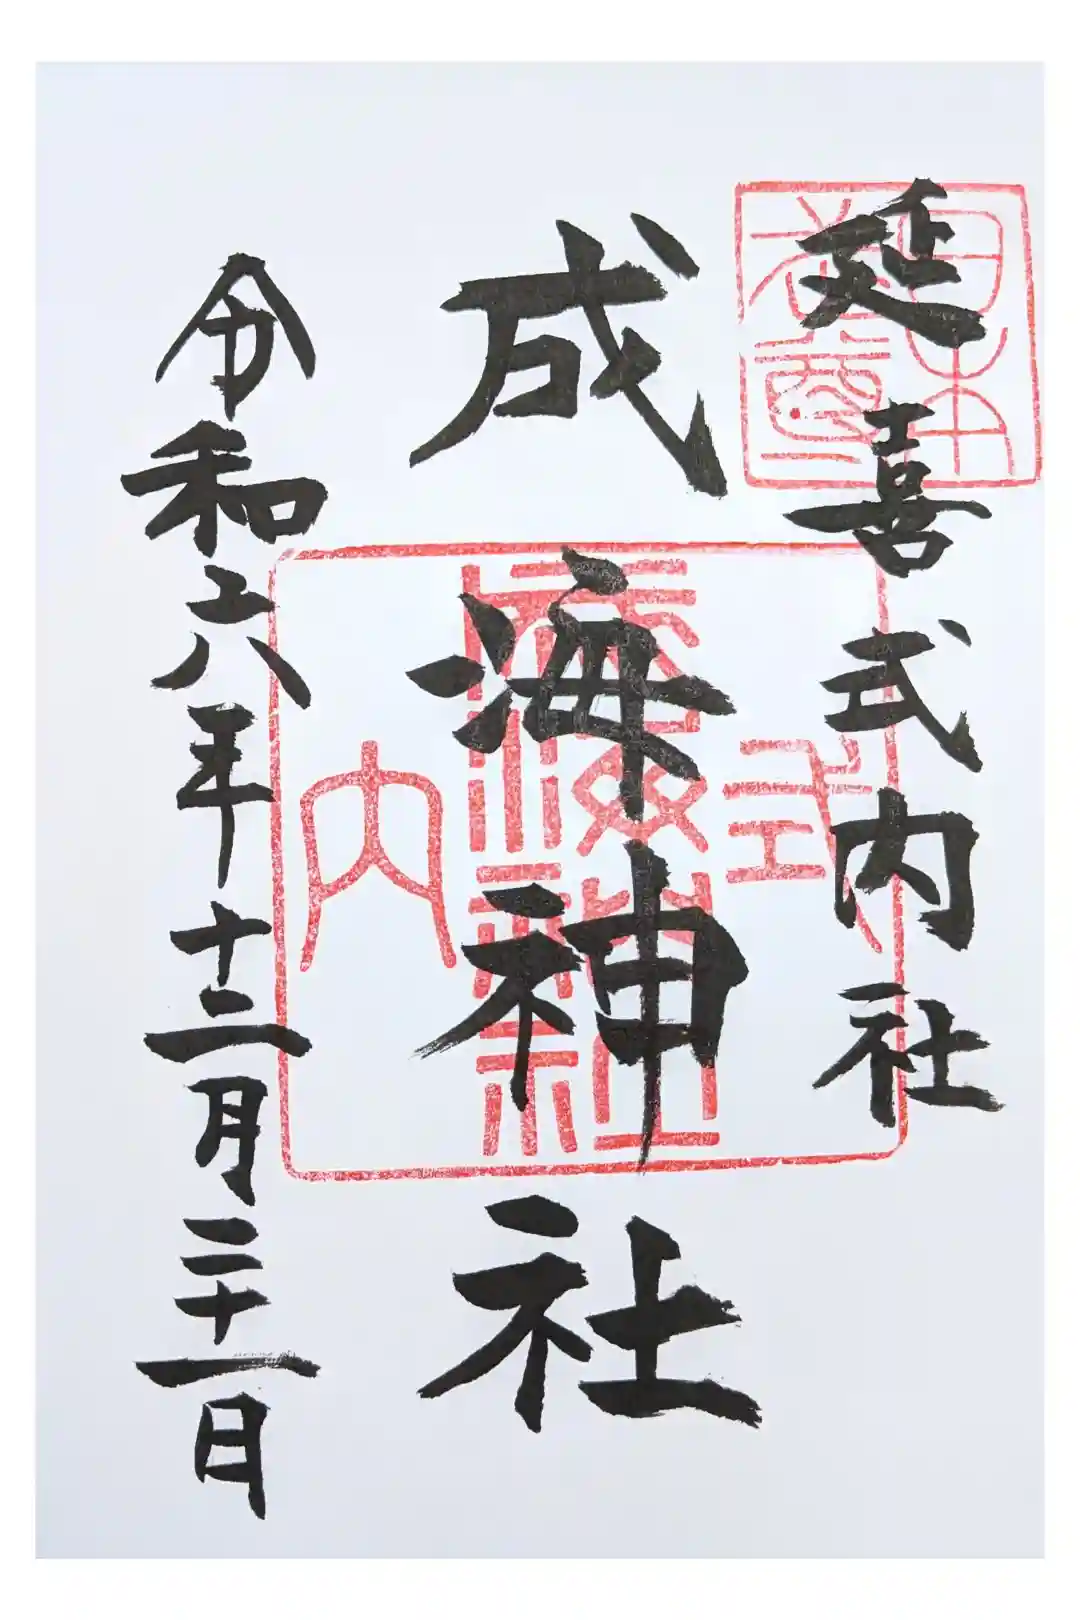 延喜式内社
日本
武尊
成海神社
式
成海神社
内
令和六年十二月二十一日